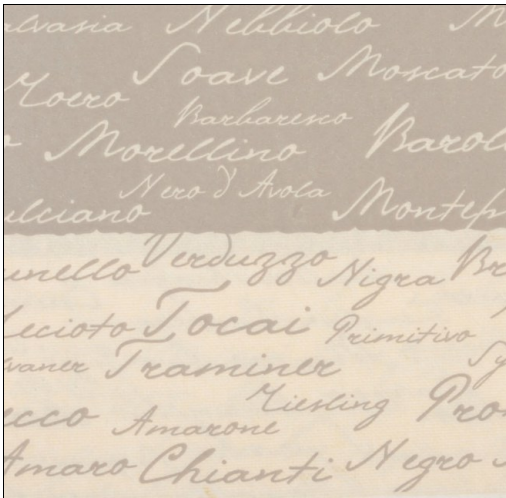 alvasia Nebbiolo M
Soave Moscato
Roero
Barbaresco
Morellino Barol
Nero d'Avola
ulciano Montep
unello Verduzzo Nigra Br
ecioto Tocai Primitivo
vaner Traminer Sy
ecco Amarone Riesling Pro
Amaro Chianti Negro